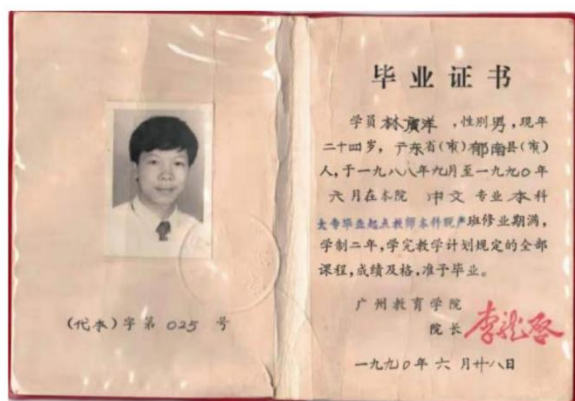 (代本)字第025号
毕业证书
学员林广洋,性别男,现年
二十四岁,广东省(市)郁南县(市)
人,于一九八八年九月至一九九〇年
六月在本院 中文 专业本科
大专毕业起点教师本科脱产班修业期满,
学制二年,学完教学计划规定的全部
课程,成绩及格,准予毕业。
广州教育学院
院长
一九九〇年六月廿八日